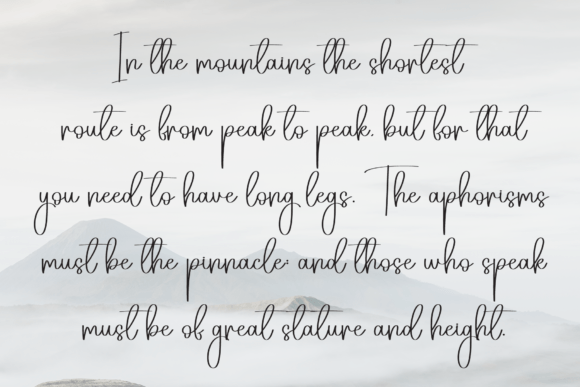 In the mountains the shortest
route is from peak to peak. but for that
you need to have long legs. The aphorisms
must be the pinnacle: and those who speak
must be of great stature and height.